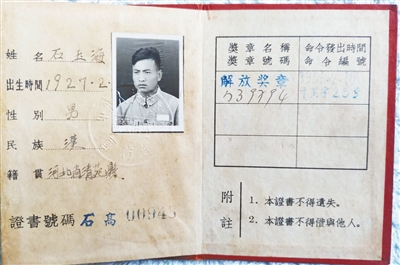 姓名 石玉海
出生時間 1927.2
性別 男
民族 漢
籍貫 河北省清苑縣
證書號碼 石高
獎章名稱 命令發出時間
獎章號碼 命令編號
解放奖章
539794
附註
1. 本證書不得遺失。
2. 本證書不得借與他人。